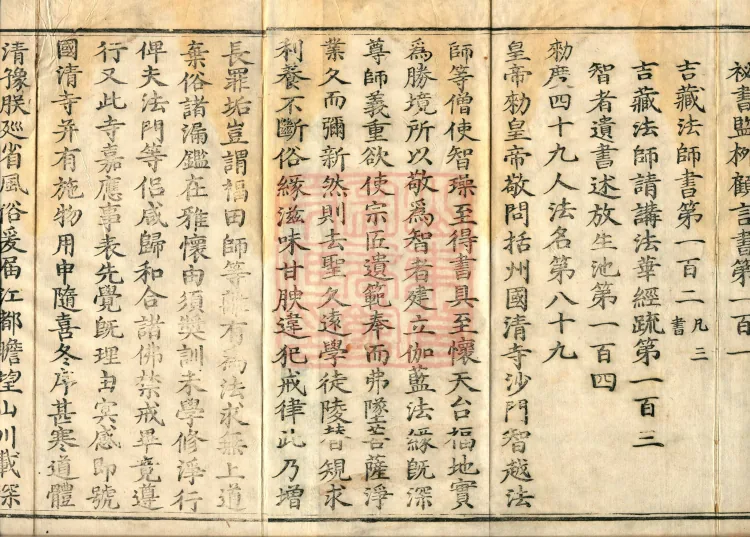 秘書監柳顧言書第一百一
吉藏法師書第一百二 凡三書
吉藏法師請講法華經疏第一百三
智者遺書述放生池第一百四
勑度四十九人法名第八十九
皇帝勑皇帝敬問括州國清寺沙門智越法
師等僧使智璪至得書具至懷天台福地實
為勝境所以敬為智者建立伽藍法緣既深
尊師義重欲使宗匠遺範奉而弗墜菩薩淨
業久而彌新然則去聖久遠學徒陵替規求
利養不斷俗緣滋味甘腴違犯戒律此乃增
長罪垢豈謂福田師等離有為法求無上道
棄俗諸漏鑑在雅懷由須獎訓未學修淨行
俾夫法門等侶咸歸和合諸佛禁戒畢竟遵
行又此寺嘉應事表先覺既理由冥感即號
國清寺并有施物用申隨喜冬序甚寒道體
清豫朕巡省風俗爰屆江都瞻望山川載深